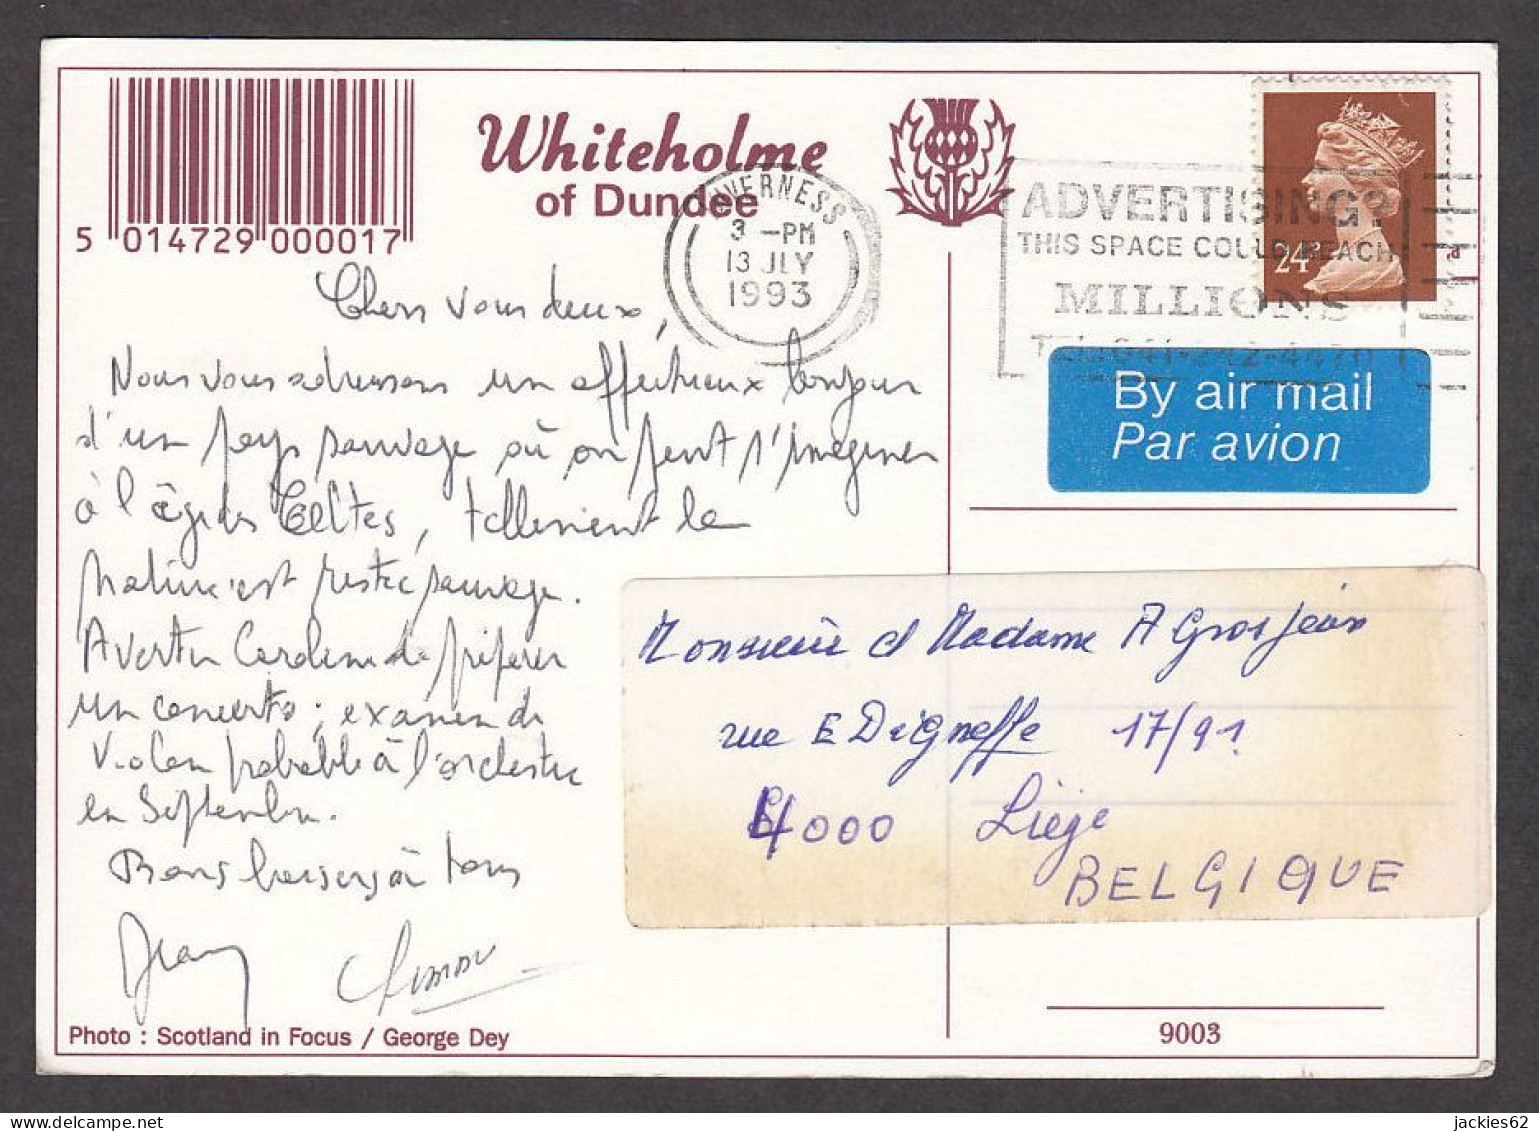 5 014729 000017
Whiteholme
of Dundee
INVERNESS
3 -PM
13 JLY
1993
ADVERTISING?
THIS SPACE COULD REACH
MILLIONS
TEL: 041-242-4470
24P
By air mail
Par avion
Chers vous deux,
Nous vous adressons un affectueux bonjour
d'un pays sauvage où on peut s'imaginer
à l'âge des Celtes, tellement la
nature est restée sauvage.
Avertir Caroline de préparer
un concerto ; examen de
violon probable à l'orchestre
en Septembre.
Bons baisers à tous
Jean Simon
Monsieur et Madame A Grosjean
rue E Digneffe 17/91
4000 Liège
BELGIQUE
Photo : Scotland in Focus / George Dey
9003
jackies62